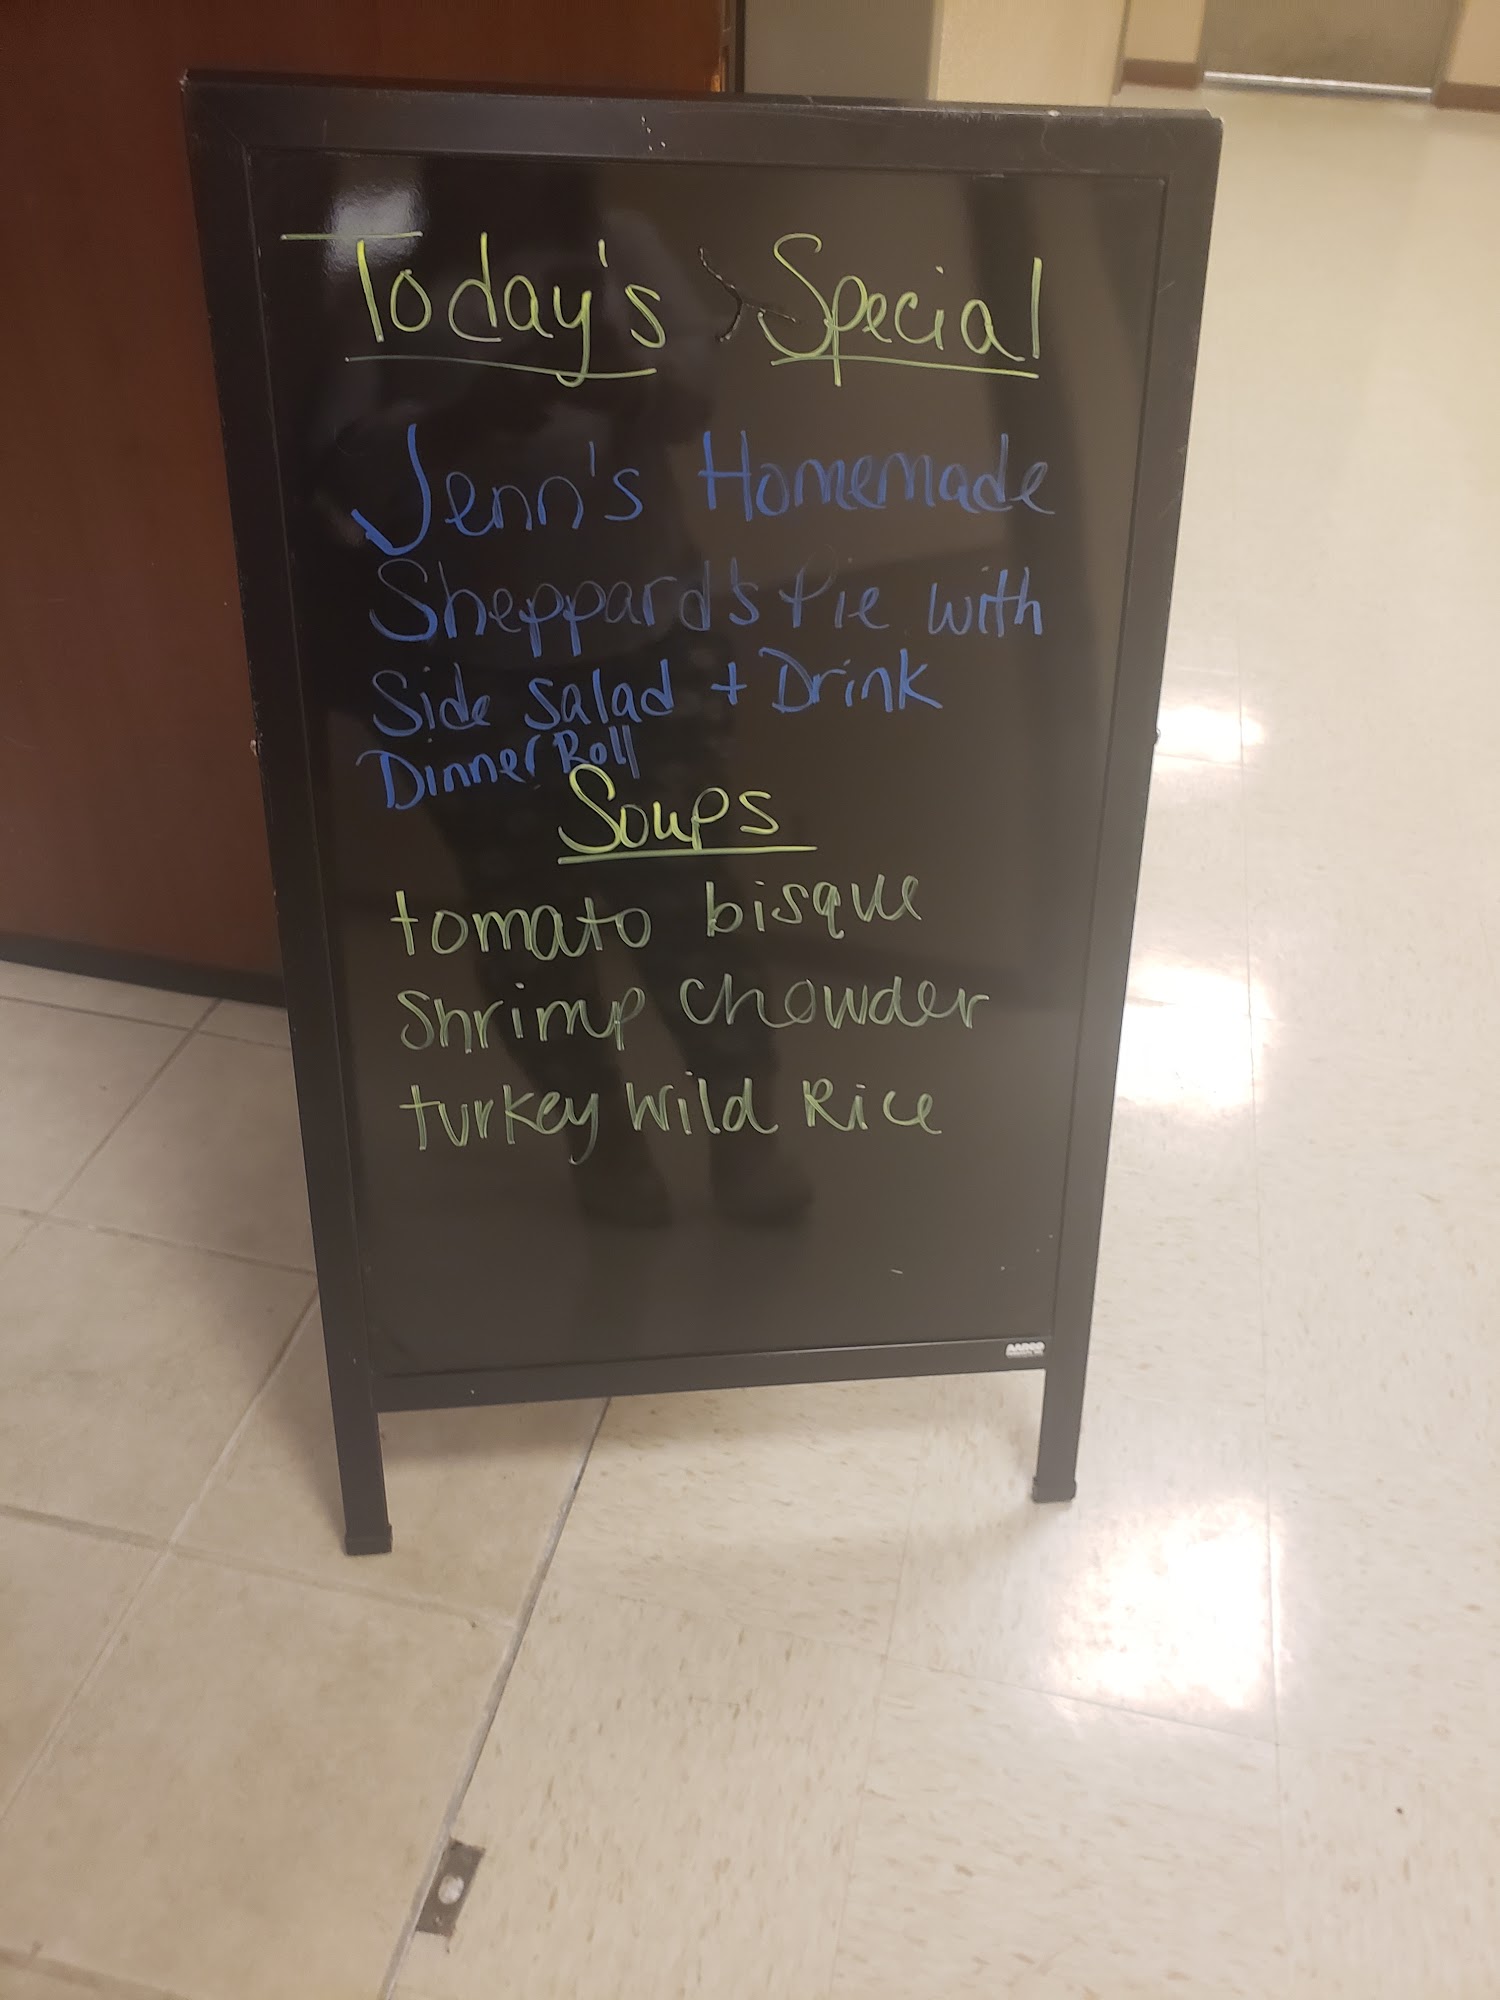 Today's Special
Jenn's Homemade
Sheppard's Pie with
Side Salad + Drink
Dinner Roll
Soups
tomato bisque
Shrimp Chowder
turkey Wild Rice
AARCO